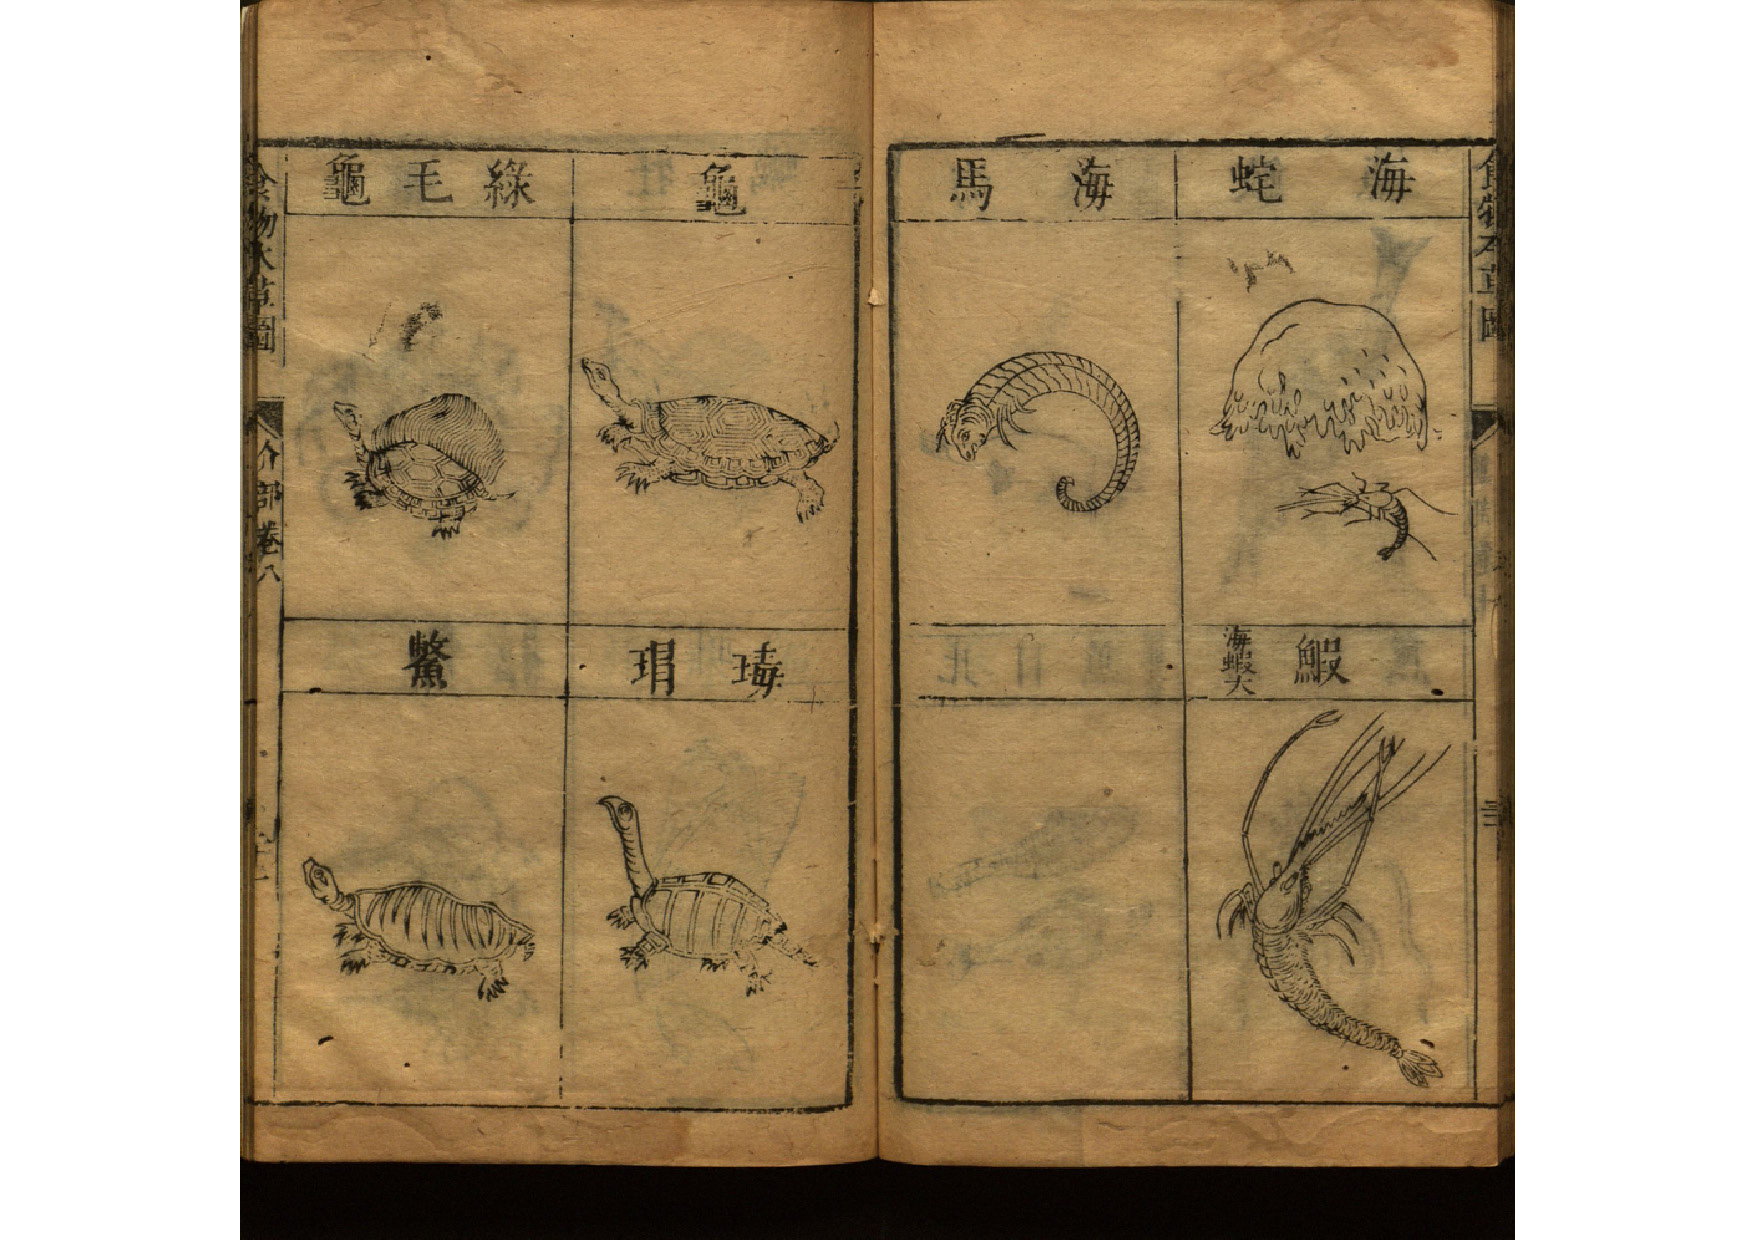 食物本草圖
海蛇
海馬
鰕 海蝦大
三
龜
綠毛龜
瑇瑁
鱉
食物本草圖
介部卷八